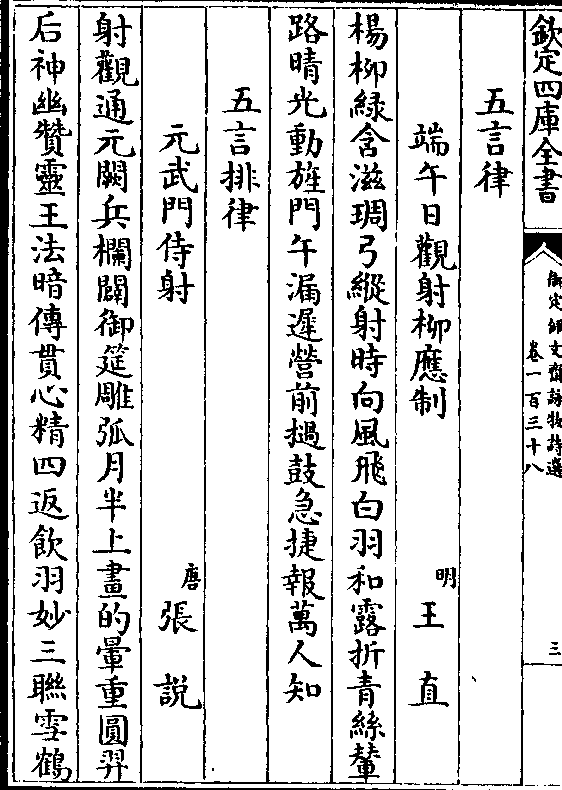 欽定四庫全書
御定佩文齋詠物詩選
卷一百三十八
三
五言律
端午日觀射柳應制
明
王直
楊柳緑含滋琱弓縱射時向風飛白羽和露折青絲輦
路晴光動旌門午漏遲營前撾鼓急捷報萬人知
五言排律
元武門侍射
唐
張説
射觀通元闕兵欄闢御筵雕弧月半上畫的暈重圓羿
后神幽贊靈王法暗傳貫心精四返飲羽妙三聯雪鶴